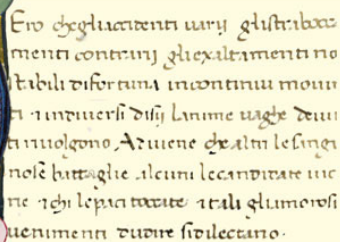 Ero che gli accidenti varij gli strabocca
menti contrarij gli exaltamenti no
tabili di fortuna in continui movi
ti in diversi disij l anime vaghe de vivi
ti involgono Aviene che altri le sangui
nose battaglie alcuni le candidate vic
rie chi le paci toccate tali gli amorosi
venimenti d udire si dilectano